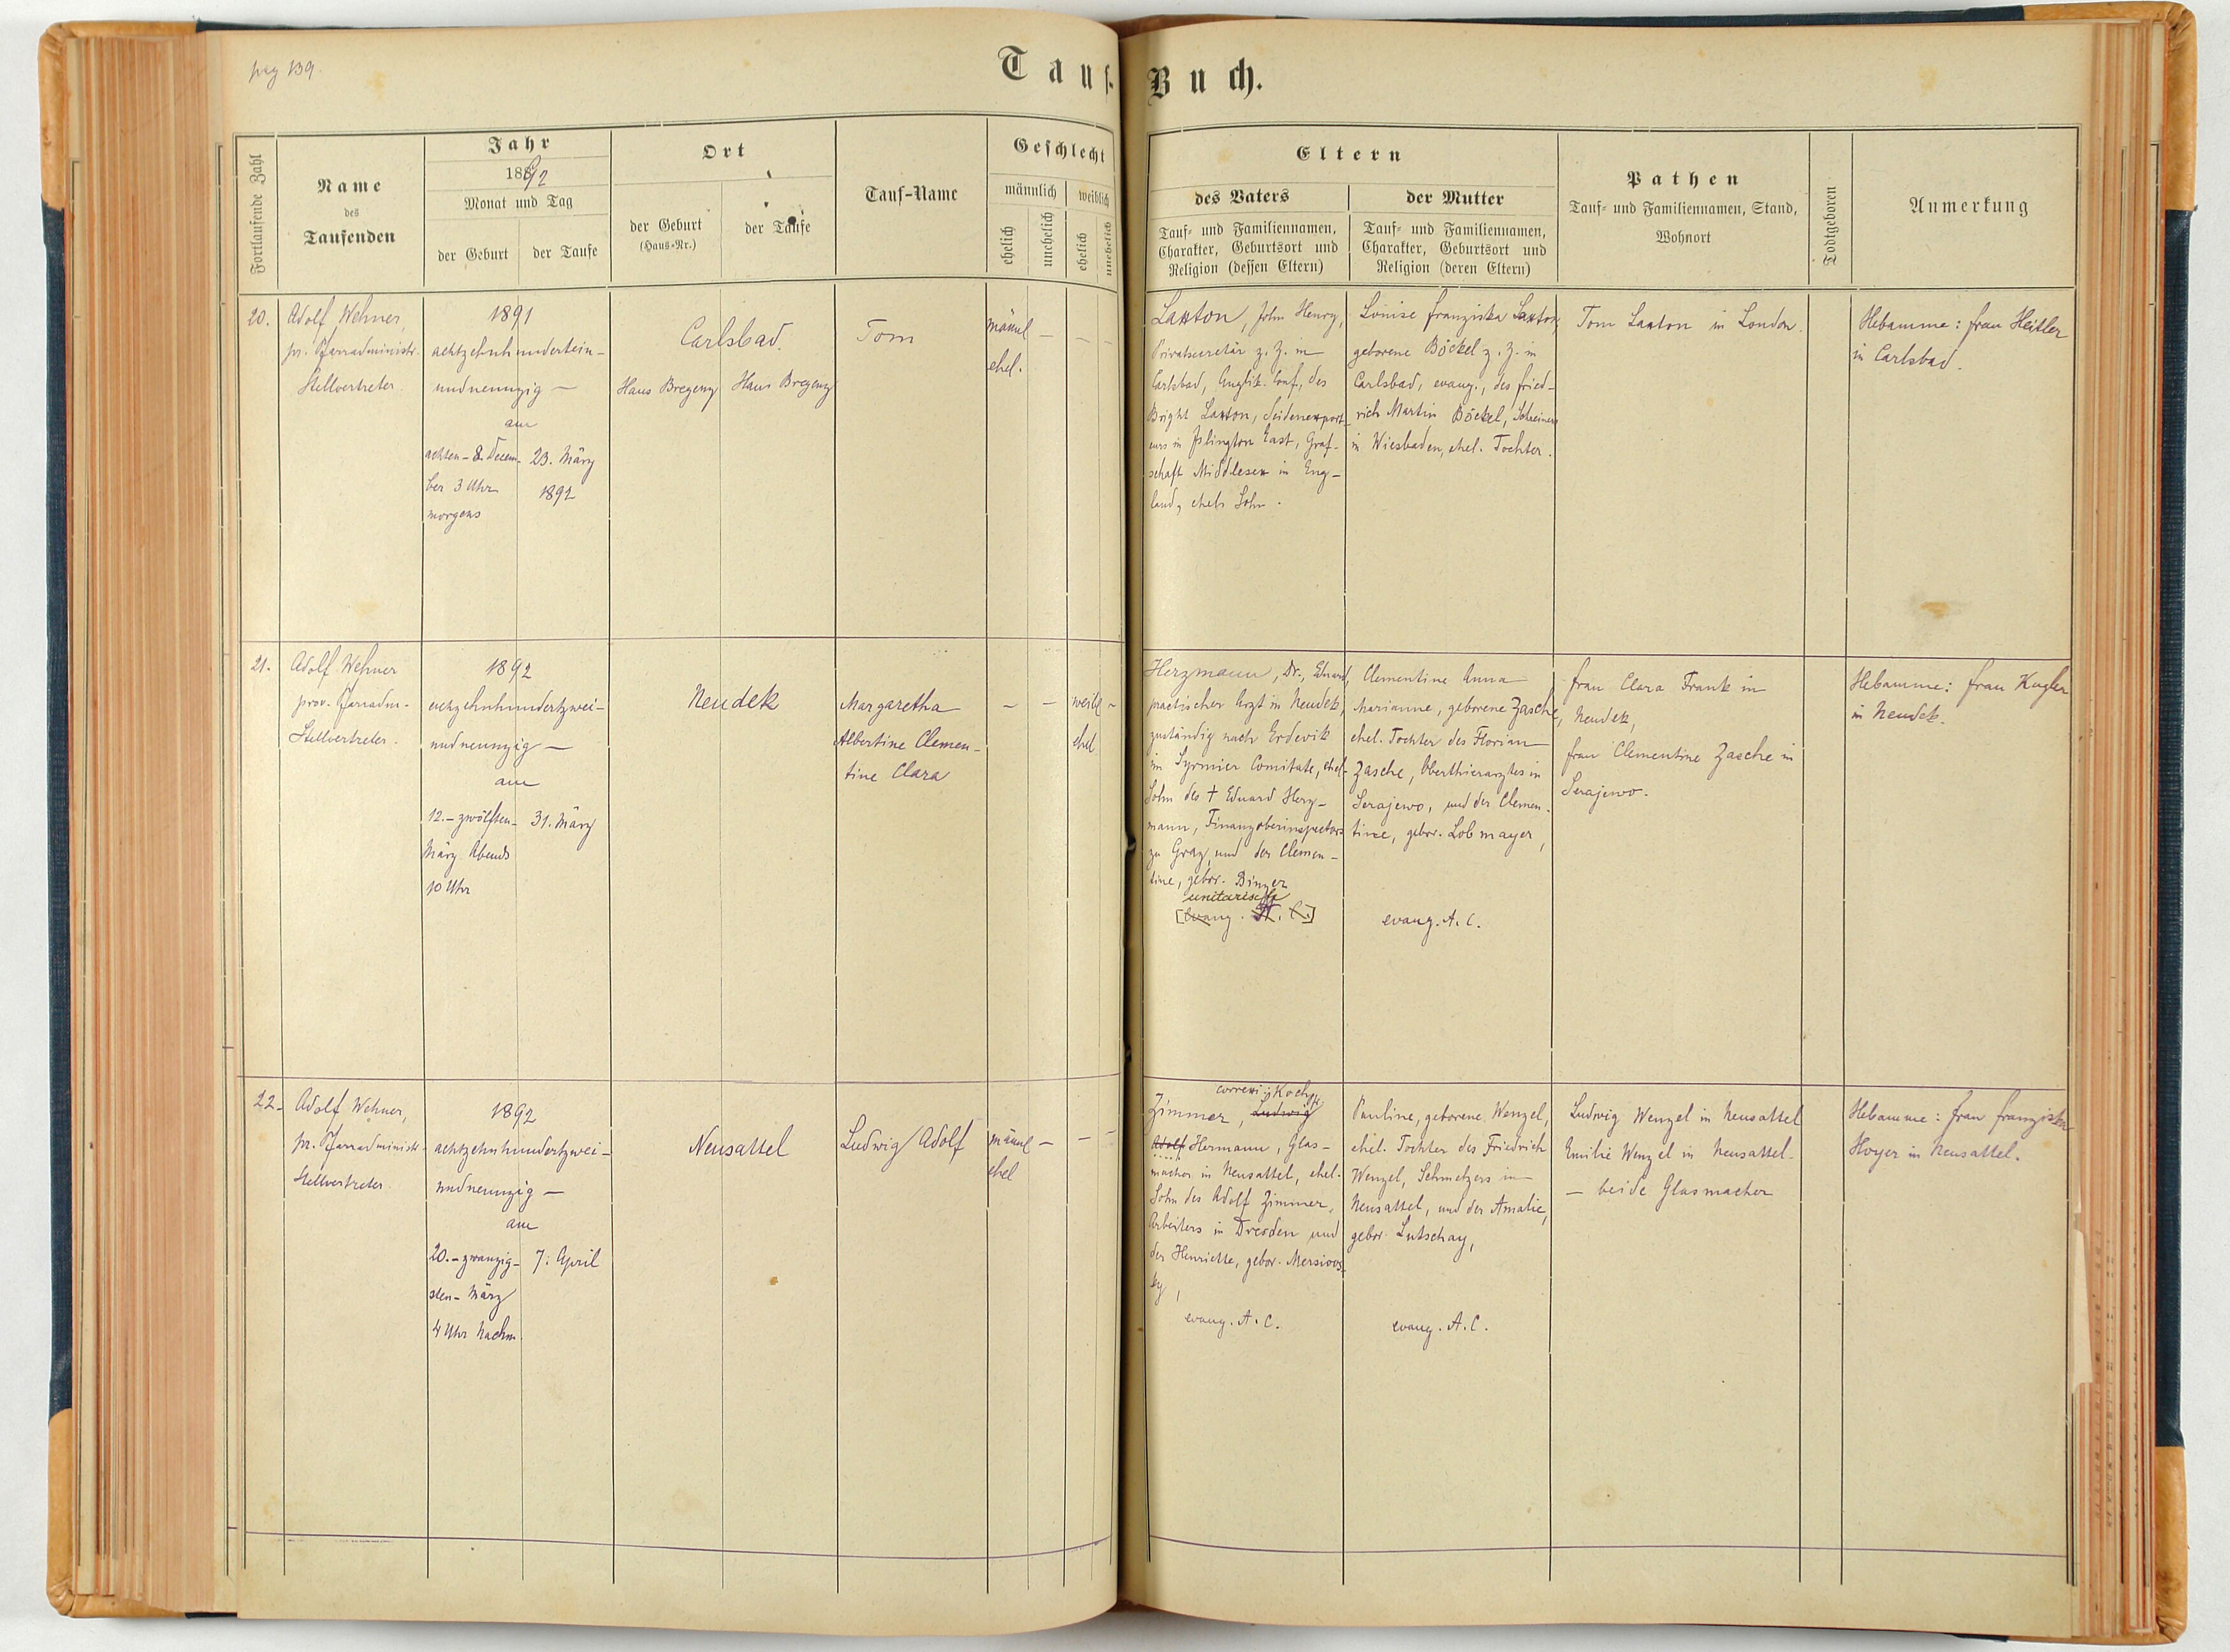 pag 139.
Tauf-Buch.
Fortlaufende Zahl
Name
des
Taufenden
Jahr
1892
Monat und Tag
der Geburt
der Taufe
Ort
der Geburt
(Haus-Nr.)
der Taufe
Tauf-Name
Geschlecht
männlich
weiblich
ehelich
unehelich
ehelich
unehelich
Eltern
des Vaters
Tauf- und Familiennamen,
Charakter, Geburtsort und
Religion (dessen Eltern)
der Mutter
Tauf- und Familiennamen,
Charakter, Geburtsort und
Religion (deren Eltern)
Pathen
Tauf- und Familiennamen, Stand,
Wohnort
Todtgeboren
Anmerkung
20.
Adolf Wehner,
pr. Pfarradministr.
Stellvertreter.
1891
achtzehnhundertein-
undneunzig —
am
achten - 8. Decem-
ber 3 Uhr
morgens
23. März
1892
Carlsbad.
Haus Bregenz
Haus Bregenz
Tom
männl — — —
ehel.
Laxton, John Henry,
Privatsecretär z. Z. in
Carlsbad, Anglik. Conf., des
Bright Laxton, Seidenexport-
eurs in Islington East, Graf-
schaft Middlesex in Eng-
land, ehel. Sohn.
Louise Franziska Laxton,
geborene Böckel z. Z. in
Carlsbad, evang., des Fried-
rich Martin Böckel, Schreiners
in Wiesbaden, ehel. Tochter.
Tom Laxton in London.
Hebamme: Frau Heitler
in Carlsbad.
21.
Adolf Wehner
prov. Pfarradm.-
Stellvertreter.
1892
achtzehnhundertzwei-
undneunzig —
am
12. - zwölften -
März Abends
10 Uhr
31. März
Neudek
Margaretha
Albertine Clemen-
tine Clara
— — weibl —
ehel
Herzmann, Dr., Eduard,
practischer Arzt in Neudek,
zuständig nach Erdevik
im Syrmier Comitate, ehel.
Sohn des † Eduard Herz-
mann, Finanzoberinspectors
zu Graz, und der Clemen-
tine, gebor. Binzer
unitarisch
[evang. A. C.]
Clementine Anna
Marianne, geborene Zasche,
ehel. Tochter des Florian
Zasche, Oberthierarztes in
Serajewo, und der Clemen-
tine, gebor. Lobmayer,
evang. A. C.
Frau Clara Frank in
Neudek,
Frau Clementine Zasche in
Serajewo.
Hebamme: Frau Kugler
in Neudek.
22.
Adolf Wehner,
pr. Pfarradministr.
Stellvertreter.
1892
achtzehnhundertzwei-
undneunzig —
am
20. - zwanzig-
sten - März
4 Uhr Nachm.
7. April
Neusattel
Ludwig Adolf
männl — — —
ehel
Zimmer, Ludwig
Adolf Hermann, Glas-
macher in Neusattel, ehel.
Sohn des Adolf Zimmer,
Arbeiters in Dresden und
der Henriette, gebor. Mersiovs-
ky,
evang. A. C.
Pauline, geborene Wenzel,
ehel. Tochter des Friedrich
Wenzel, Schmelzers in
Neusattel, und der Amalie,
gebor. Lutschay,
evang. A. C.
Ludwig Wenzel in Neusattel
Emilie Wenzel in Neusattel.
— beide Glasmacher
Hebamme: Frau Franziska
Hoyer in Neusattel.